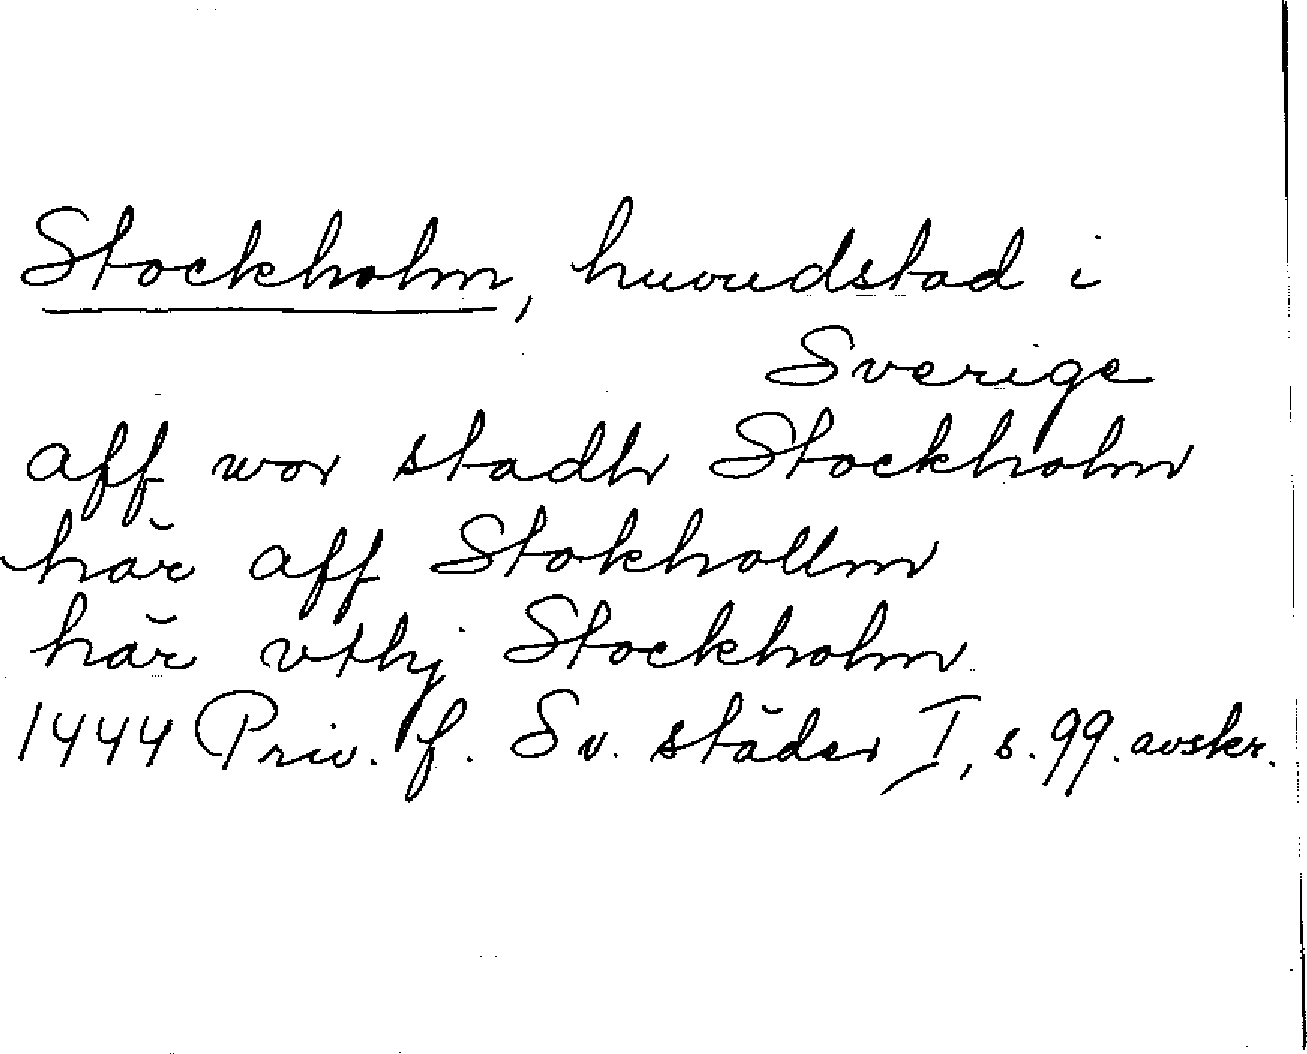 Stockholm, huvudstad i
Sverige
aff wor stadh Stockholm
här aff Stokhollm
här vthj Stockholm
1444 Priv. f. Sv. städer I, s. 99. avskr.